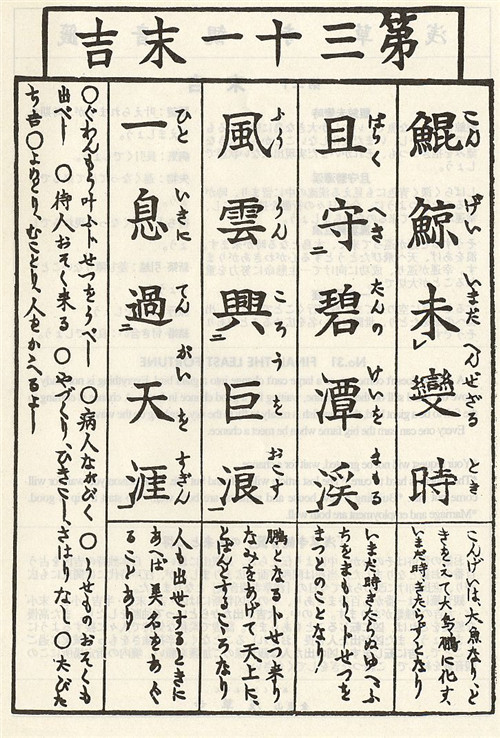 第三十一末吉
鯤鯨未變時
こん げい いまだ へんぜざる とき
こんげいは、大魚なり、と
きをえて大鳥鵬に化す、
いまだ時きたらずとなり
且守碧潭渓
たん けいを まもる
いまだ時きたらぬゆへふ
ちをまもりトせつを
まつとのことなり
風雲興巨浪
ふう うん
鵬となるトせつ来り
なみをあげて天上に、
とばんとするとなり
一息過天涯
ひと いきに てん がいを すぐ
人も出世するときに
あへば
ることあり
〇ぐわんもう叶ふトせつをうべし 〇病人ながびく 〇うせものおそくも
出べし 〇待人おそく来る 〇やづくり、ひきこし、さはりなし 〇たびた
ち吉 〇よめとり、むことり、人をかゝへるよし